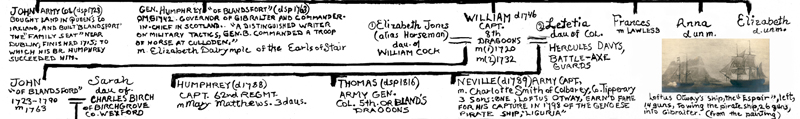 JOHN ARMY COL. (dsp1728)
BOUGHT LAND IN QUEEN'S Co
IRELAND, AND BUILT 'BLANDSFORT'
THE FAMILY SEAT NEAR
DUBLIN, FINISHED 1715; TO
WHICH HIS BR. HUMPHREY
SUCCEEDED HIM.
GEN. HUMPHREY "OF BLANDSFORT" (dsp1763)
GOVERNOR OF GIBRALTER AND COMMANDER-
IN-CHIEF IN SCOTLAND. "A DISTINGUISHED WRITER
ON MILITARY TACTICS, GEN. B. COMMANDED A TROOP
OF HORSE AT CULLODEN."
m. Elizabeth Dalrymple of the Earls of Stair
① Elizabeth Jones
(alias Horseman)
dau of
WILLIAM COCH
WILLIAM d1746
CAPT.
8th
DRAGOONS
m(1)1720
m(2)1732
② Letetia
dau of Col.
HERCULES DAVYS,
BATTLE-AXE
GUARDS
Frances
m LAWLESS
Anna
d unm.
Elizabeth
d unm.
JOHN
"OF BLANDSFORD"
1723-1790
m1763
Sarah
dau of
CHARLES BIRCH
OF BIRCHGROVE
Co. WEXFORD
HUMPHREY (d1758)
CAPT. 62nd REGMT.
m Mary Matthews. 3daus.
THOMAS (dsp1816)
ARMY GEN.
COL. 5th. OR BLAND'S
DRAGOONS
NEVILLE (d1789) ARMY CAPT.
m. Charlotte Smith of Colbarty, Co. Tipperary
3 Sons: ONE, LOFTUS OTWAY, EARN'D FAME
FOR HIS CAPTURE IN 1793 OF THE GENOESE
PIRATE SHIP, "LIGURIA"
LOFTUS OTWAY'S SHIP, The "Espoir", left,
14 guns, Towing the pirate ship, 26 guns,
into Gibralter. (from the painting)